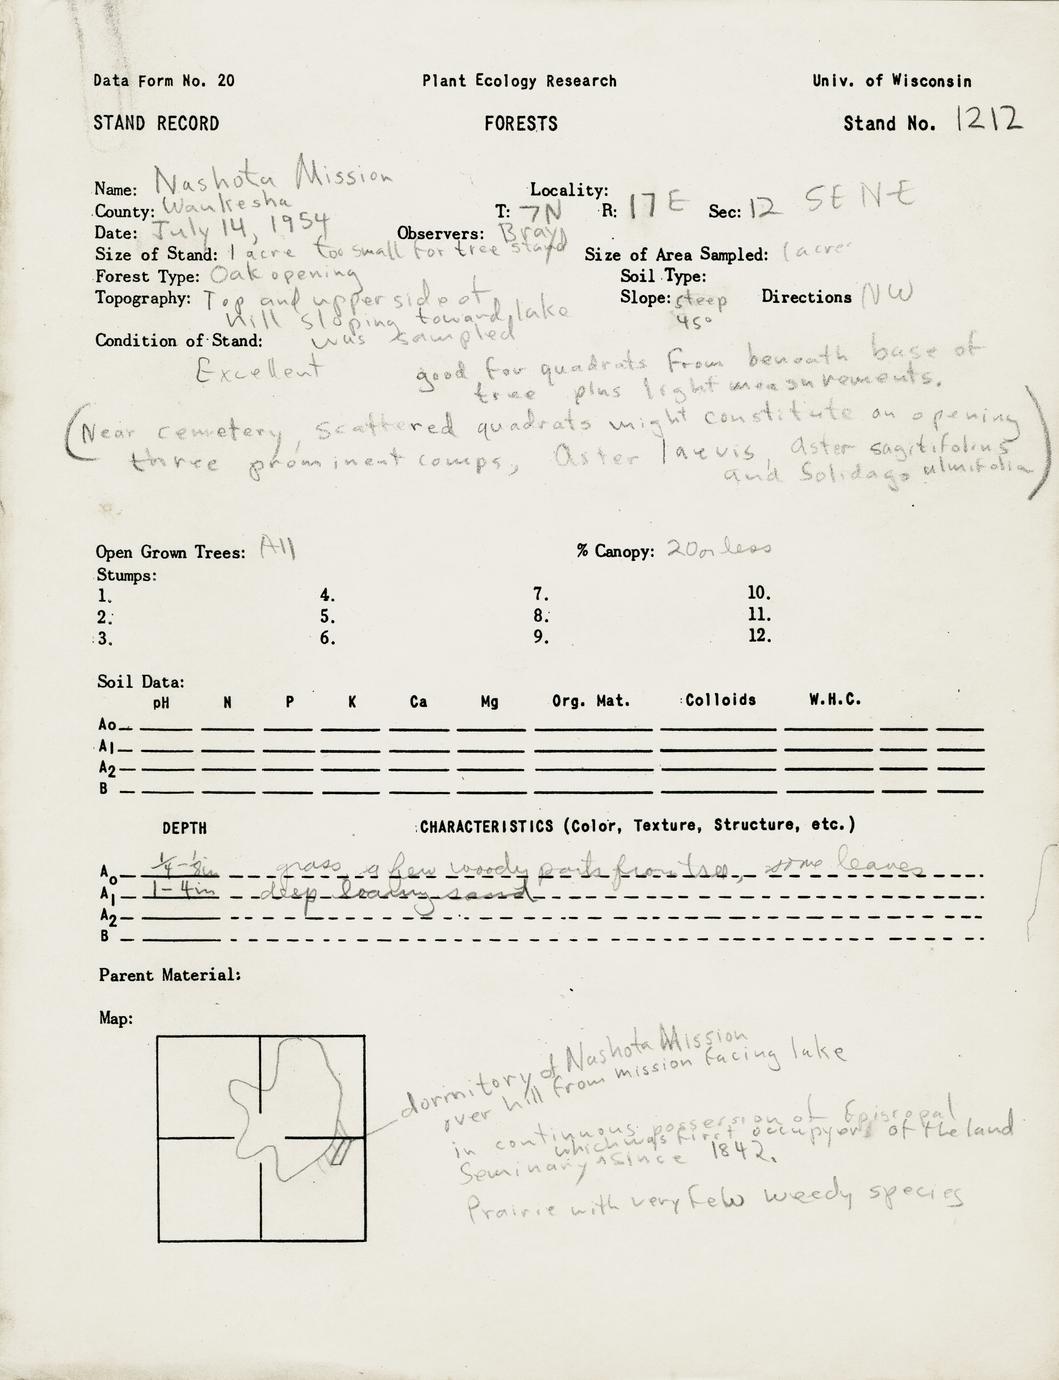 Data Form No. 20 Plant Ecology Research Univ. of Wisconsin
STAND RECORD FORESTS Stand No. 1212
Name: Nashota Mission Locality:
County: Waukesha T: 7N R: 17E Sec: 12 SE NE
Date: July 14, 1954 Observers: Bray
Size of Stand: 1 acre too small for tree stand Size of Area Sampled: 1 acre
Forest Type: Oak opening Soil Type:
Topography: Top and upper side of Slope: steep Directions NW
hill sloping toward lake 45°
Condition of Stand: was sampled
Excellent good for quadrats from beneath base of
tree plus light measurements.
(Near cemetery, scattered quadrats might constitute an opening
three prominent comps, Aster laevis, Aster sagitifolius
and Solidago ulmifolia)
Open Grown Trees: All % Canopy: 20 or less
Stumps:
1. 4. 7. 10.
2. 5. 8. 11.
3. 6. 9. 12.
Soil Data:
pH N P K Ca Mg Org. Mat. Colloids W.H.C.
Ao
A1
A2
B
DEPTH CHARACTERISTICS (Color, Texture, Structure, etc.)
Ao 1/4-1/2in grass, a few woody parts from tree, some leaves
A1 1-4in deep loamy sand
A2
B
Parent Material:
Map:
dormitory of Nashota Mission
over hill from mission facing lake
in continuous possession of Episcopal
which was first occupyers of the land
Seminary ^ since 1842.
Prairie with very few weedy species